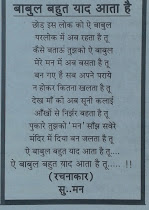 बाबुल बहुत याद आता है
छोड़ इस लोक को ऐ बाबुल
परलोक में अब रहता है तू
कैसे बताऊं तुझको ऐ बाबुल
मेरे मन में अब बसता है तू
बन गए हैं सब अपने पराये
न होकर कितना खलता है तू
देख माँ को अब सूनी कलाई
आँखों से निर्झर बहता है तू
पुकारे तुझको 'मन' साँझ सवेरे
मंदिर में दिया बन जलता है तू
ऐ बाबुल बहुत याद आता है तू....
ऐ बाबुल बहुत याद आता है तू..... !!
(रचनाकार)
सु..मन